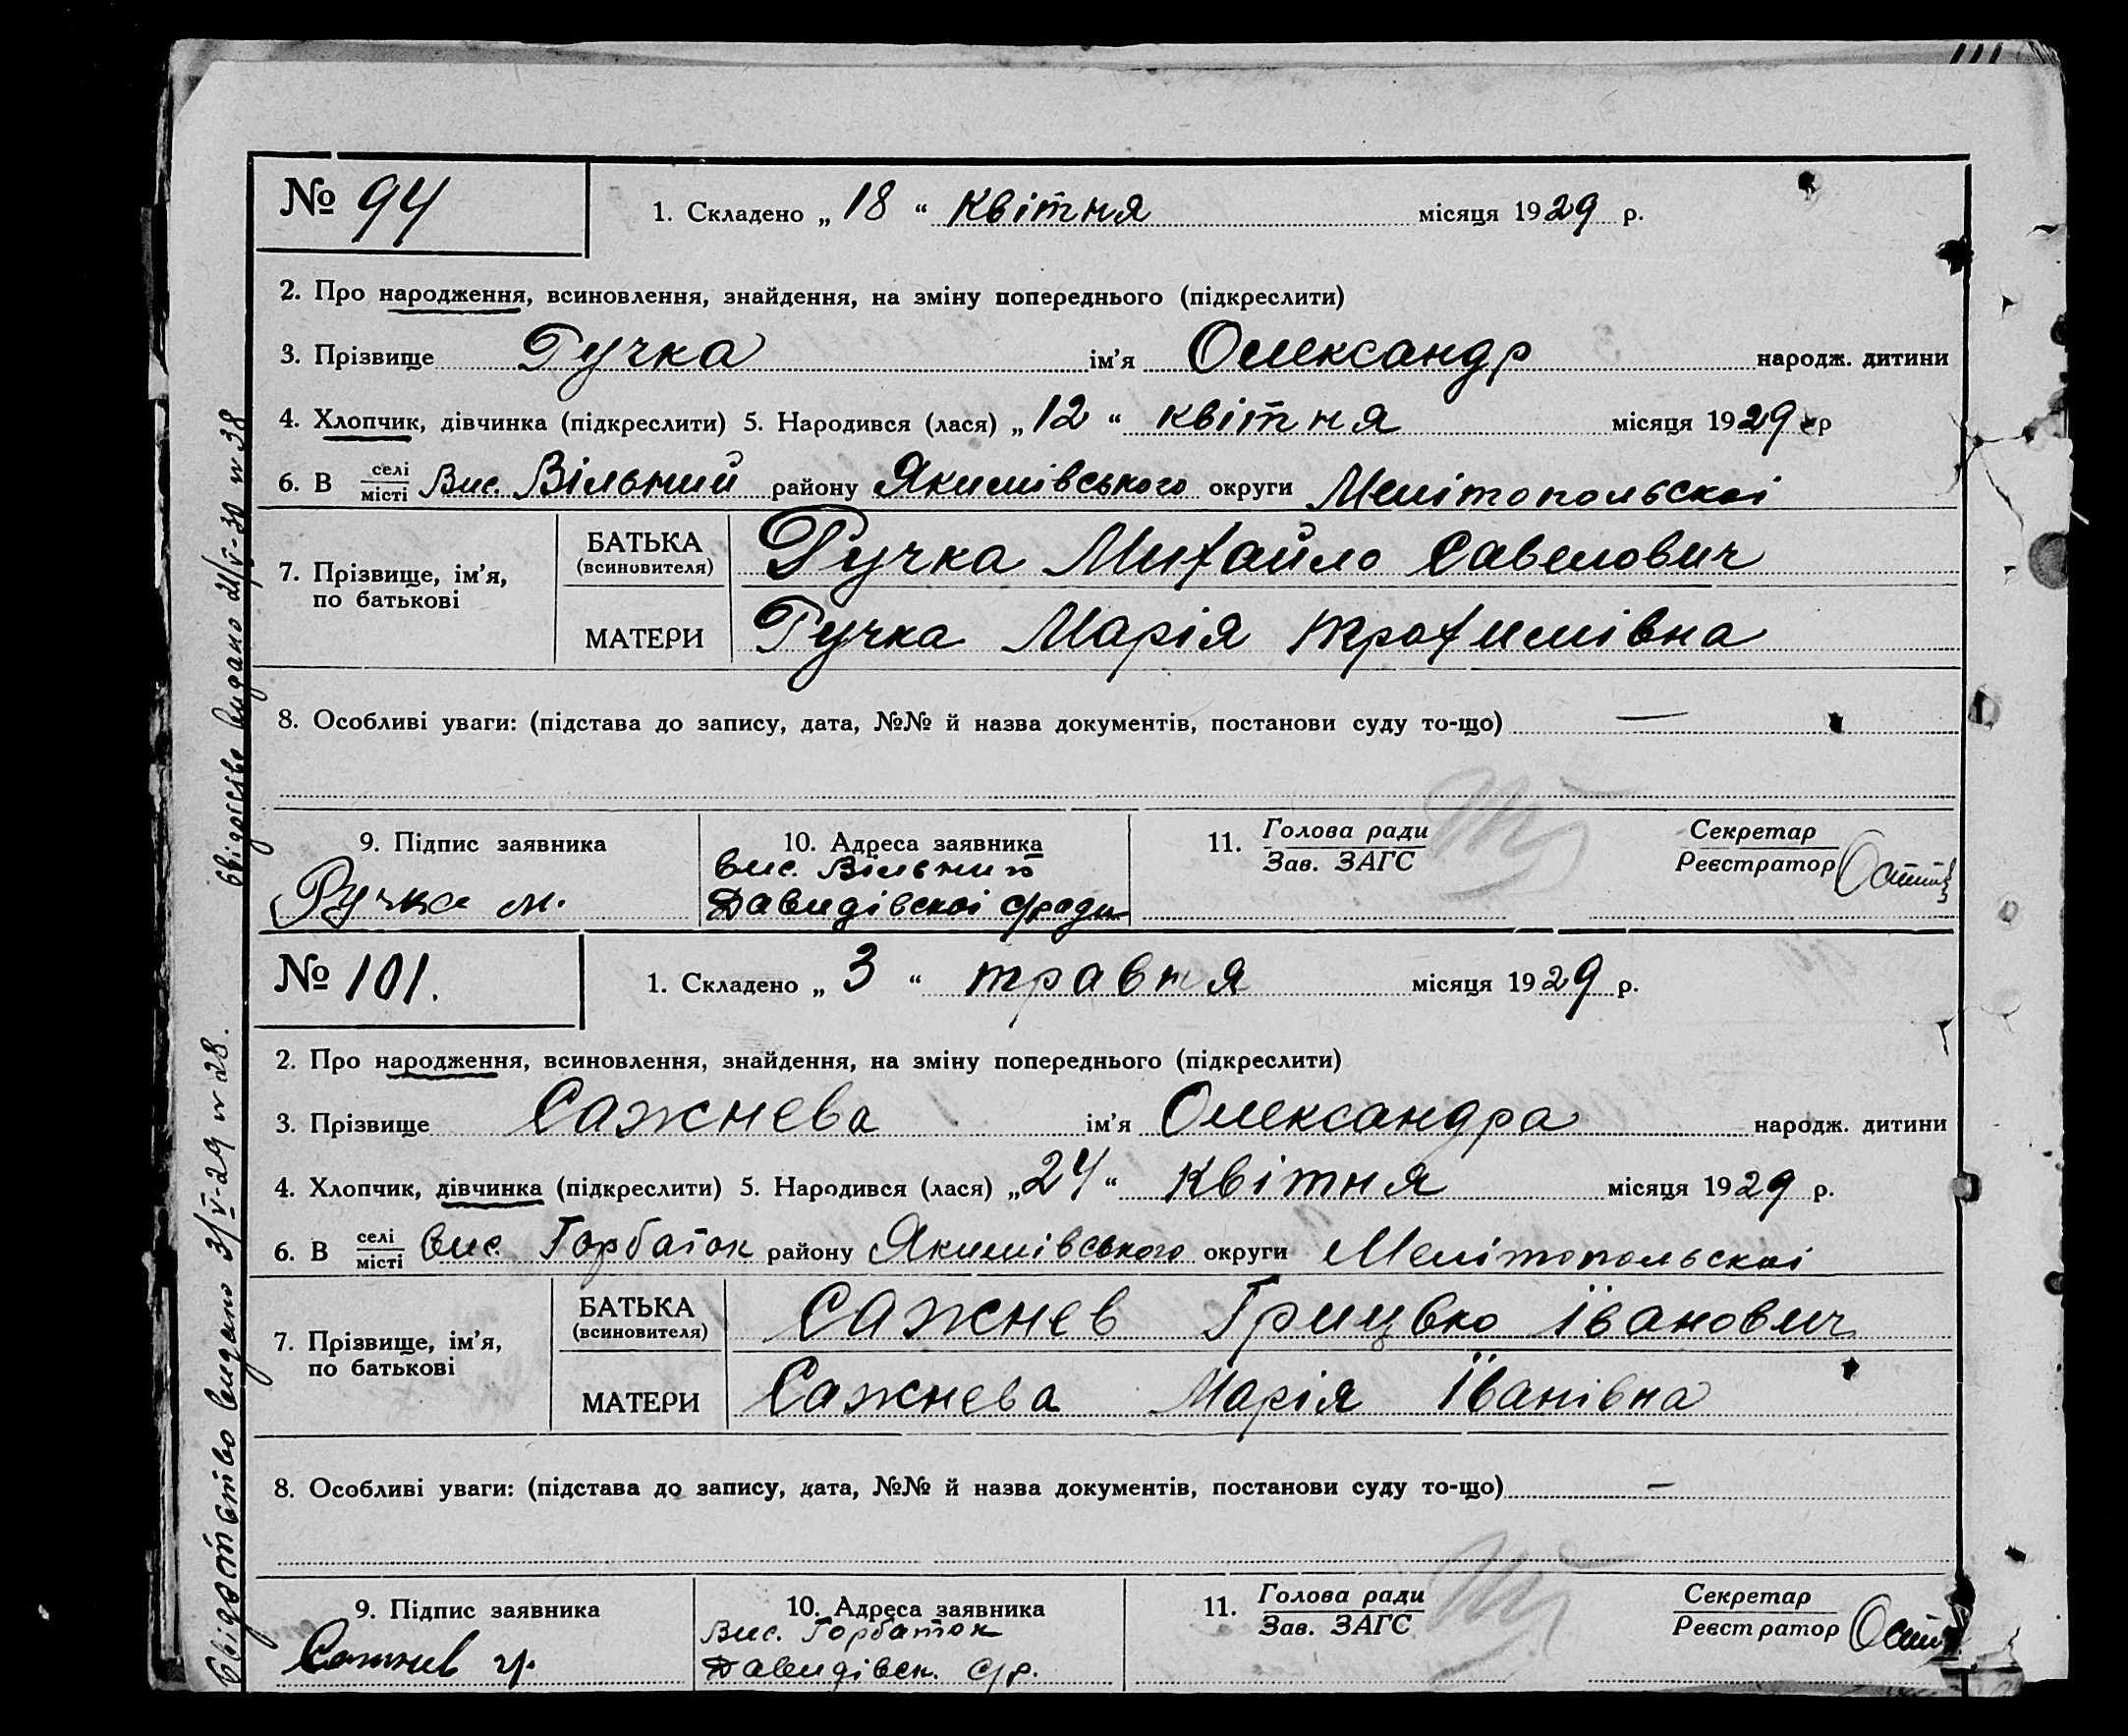 № 94
1. Складено „ 18 “ квітня місяця 1929 р.
2. Про народження, всиновлення, знайдення, на зміну попереднього (підкреслити)
3. Прізвище Ручка ім’я Олександр народж. дитини
4. Хлопчик, дівчинка (підкреслити) 5. Народився (лася) „ 12 “ квітня місяця 1929 р
6. В селі/місті Вис. Вільний району Якимівського округи Мелітопольскоі
7. Прізвище, ім’я, по батькові
БАТЬКА (всиновителя) Ручка Михайло Савелович
МАТЕРИ Ручка Марія трохимівна
8. Особливі уваги: (підстава до запису, дата, №№ й назва документів, постанови суду то-що) —
9. Підпис заявника
Ручка м.
10. Адреса заявника
вис. Вільний
Давидівскоі с/ради
11. Голова ради
Зав. ЗАГС
Секретар
Реєстратор
№ 101.
1. Складено „ 3 “ травня місяця 1929 р.
2. Про народження, всиновлення, знайдення, на зміну попереднього (підкреслити)
3. Прізвище Сажнєва ім’я Олександра народж. дитини
4. Хлопчик, дівчинка (підкреслити) 5. Народився (лася) „ 24 “ квітня місяця 1929 р.
6. В селі/місті вис. Горбаток району Якимівського округи Мелітопольскоі
7. Прізвище, ім’я, по батькові
БАТЬКА (всиновителя) Сажнев Грицько Іванович
МАТЕРИ Сажнева Марія Іванівна
8. Особливі уваги: (підстава до запису, дата, №№ й назва документів, постанови суду то-що) —
9. Підпис заявника
Сажнев гр.
10. Адреса заявника
Вис. Горбаток
Давидівск. с/р.
11. Голова ради
Зав. ЗАГС
Секретар
Реєстратор
видано 21/V-30 № 38
Свідоцтво видано 3/V-29 № 28.